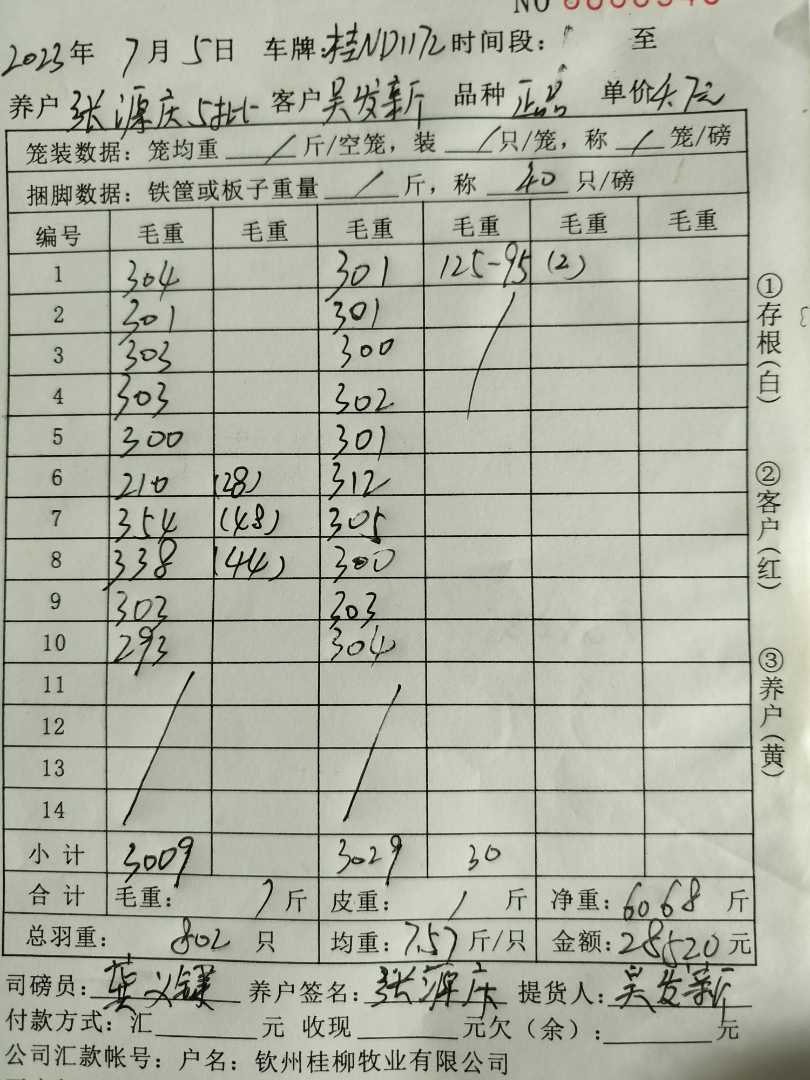 NO
2023年 7月5日 车牌:桂ND1172 时间段: 至
养户 张源庆5批 客户 吴发新 品种 正品 单价4.7元
笼装数据: 笼均重 / 斤/空笼, 装 / 只/笼, 称 / 笼/磅
捆脚数据: 铁筐或板子重量 / 斤, 称 40 只/磅
编号 毛重 毛重 毛重 毛重 毛重 毛重
1 304 301 125-95 (2)
2 301 301 /
3 303 300
4 303 302
5 300 301
6 210 (28) 312
7 354 (48) 305
8 338 (44) 300
9 303 303
10 293 304
11 / /
12
13
14
小计 3009 3029 30
合计 毛重: / 斤 皮重: / 斤 净重: 6068 斤
总羽重: 802 只 均重: 7.57 斤/只 金额: 28520 元
司磅员: 养户签名: 张源庆 提货人: 吴发新
付款方式: 汇 元 收现 元欠(余): 元
公司汇款帐号: 户名: 钦州桂柳牧业有限公司
①存根(白)
②客户(红)
③养户(黄)